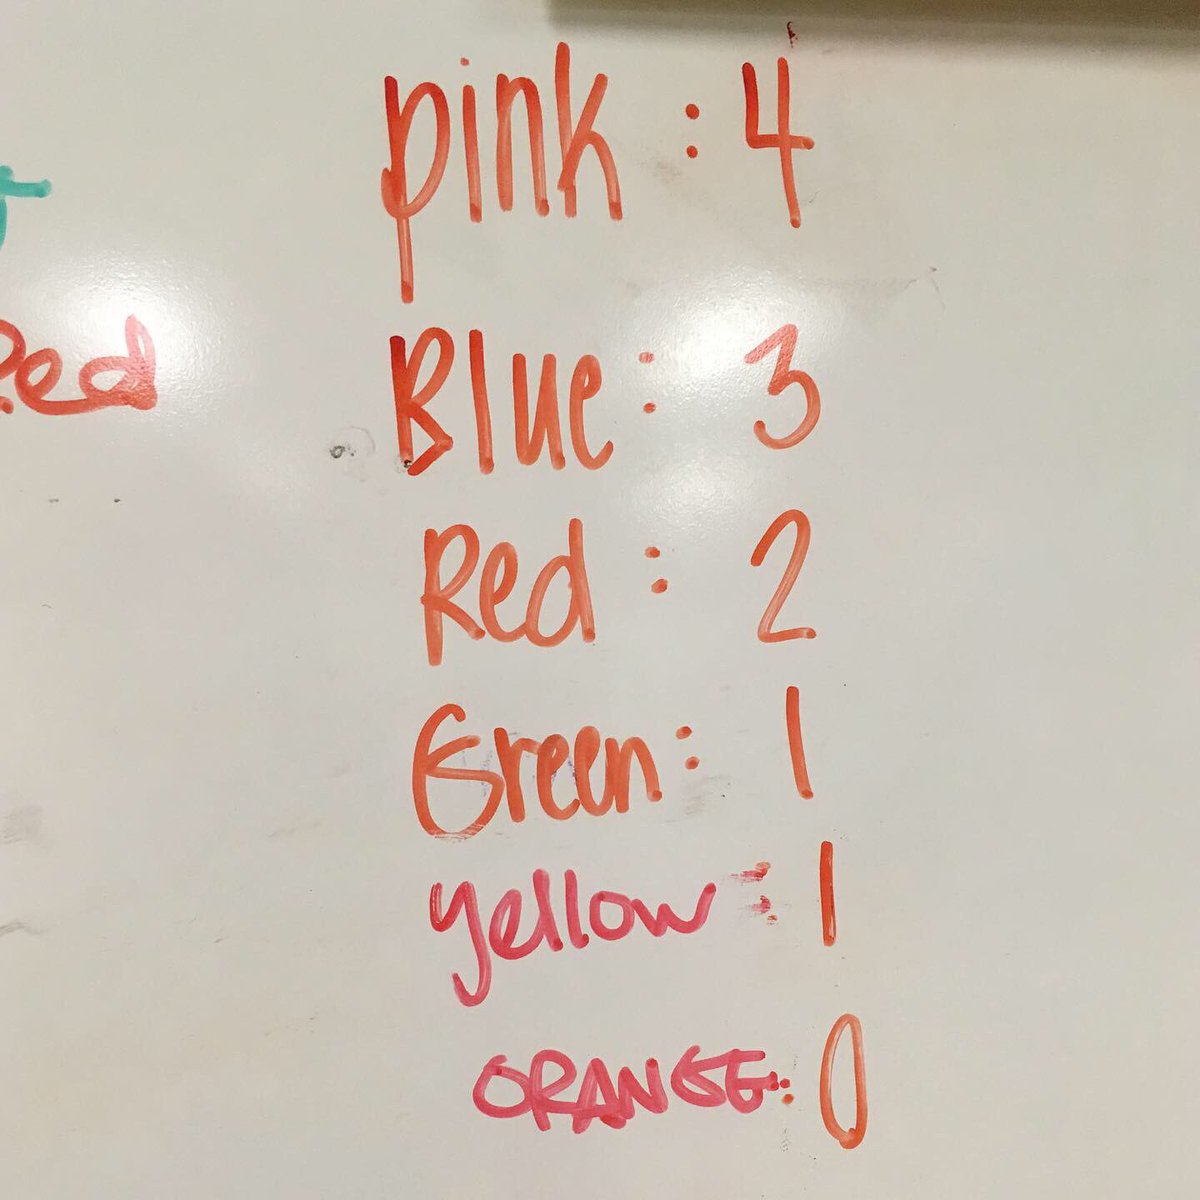 pink : 4
Red
Blue : 3
Red : 2
Green : 1
yellow : 1
ORANGE : 0